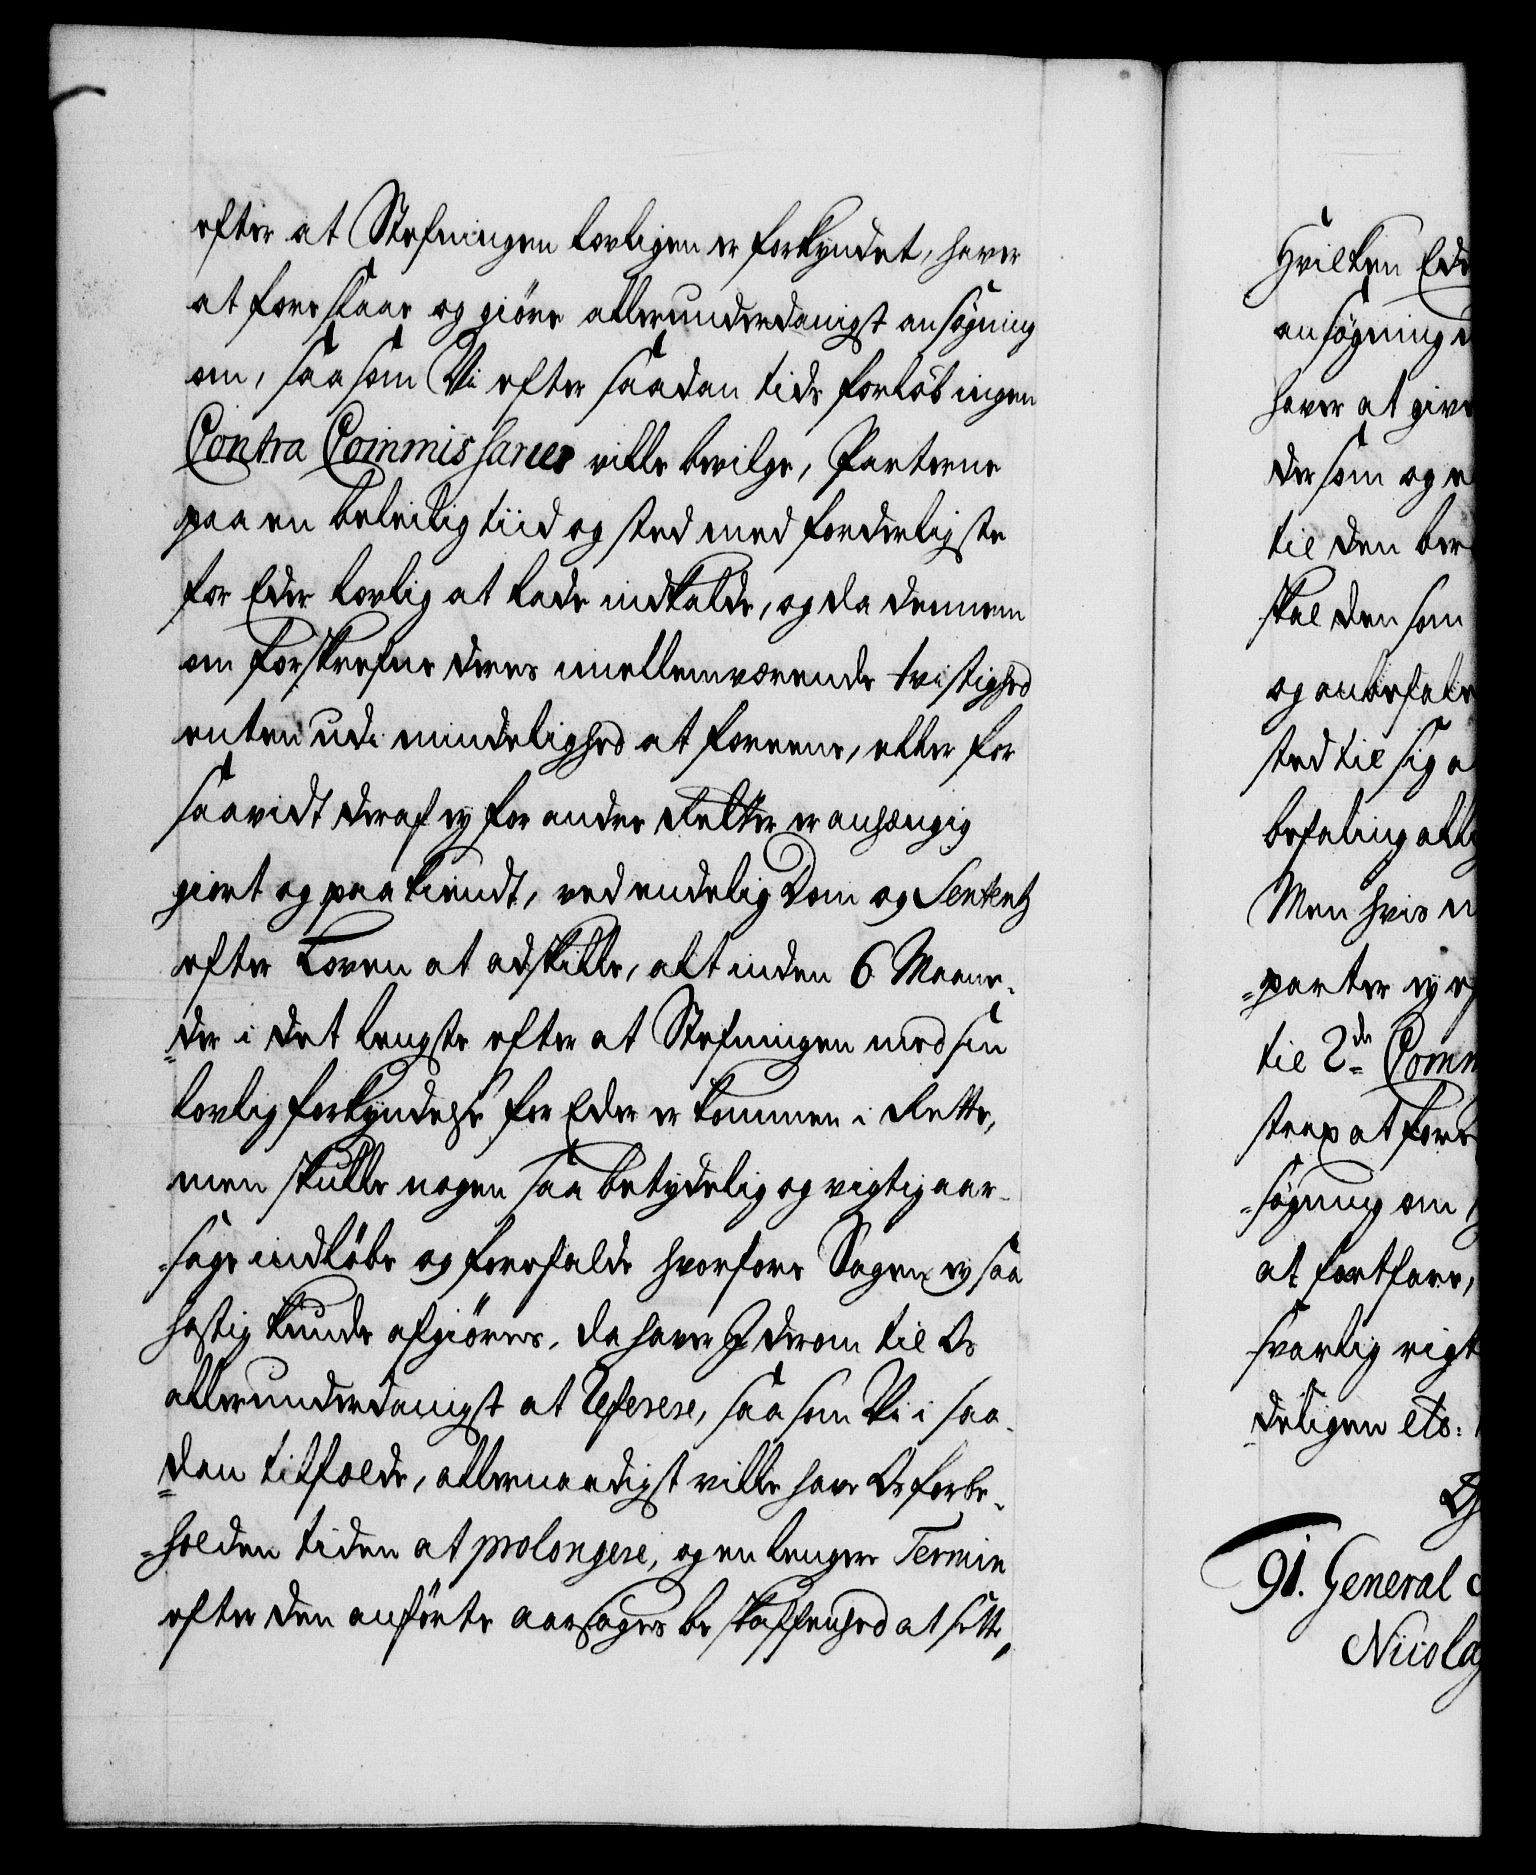 efter at Stefningen lovligen er forkyndet, haver
at foreslaae og giöre allerunderdanigst ansögning
om, saasom Vi efter saadan tids forlöb ingen
Contra Commissarier ville bevilge, Parterne
paa en beleilig tiid og sted med forderligste
for Eder lovlig at lade indkalde, og da dennem
om forskrefne deres imellemværende tvistighed
enten udi mindelighed at foreene, eller for
saavidt deraf ey for andre Retter er anhængig
giort og paakiendt, ved endelig Dom og Sententz
efter Loven at adskille, alt inden 6 Maane-
=der i det længste efter at Stefningen med sin
lovlig forkyndelse for Eder er kommen i Rette,
men skulle nogen saa betydelig og vigtig aar-
=sage indlöbe og forefalde hvorfore Sagen ey saa
hastig kunde afgiöres, da haver I derom til Os
allerunderdanigst at Referere, saasom Vi i saa-
=dan tilfælde, allernaadigst ville have Os forbe-
=holden tiden at prolongere, og en længere Termin
efter den anförte aarsages beskaffenhed at sette,
Hvilken Ede
ansögning
haver at give
dersom og e
til den be
skal den som
og anbefale
sted til sig a
befaling all
Men hvis
=parter ey
til 2de Comm
strax at fore
=sögning om
at fortfare,
svarlig rigt
=deligen etc:
91. General
Nicola